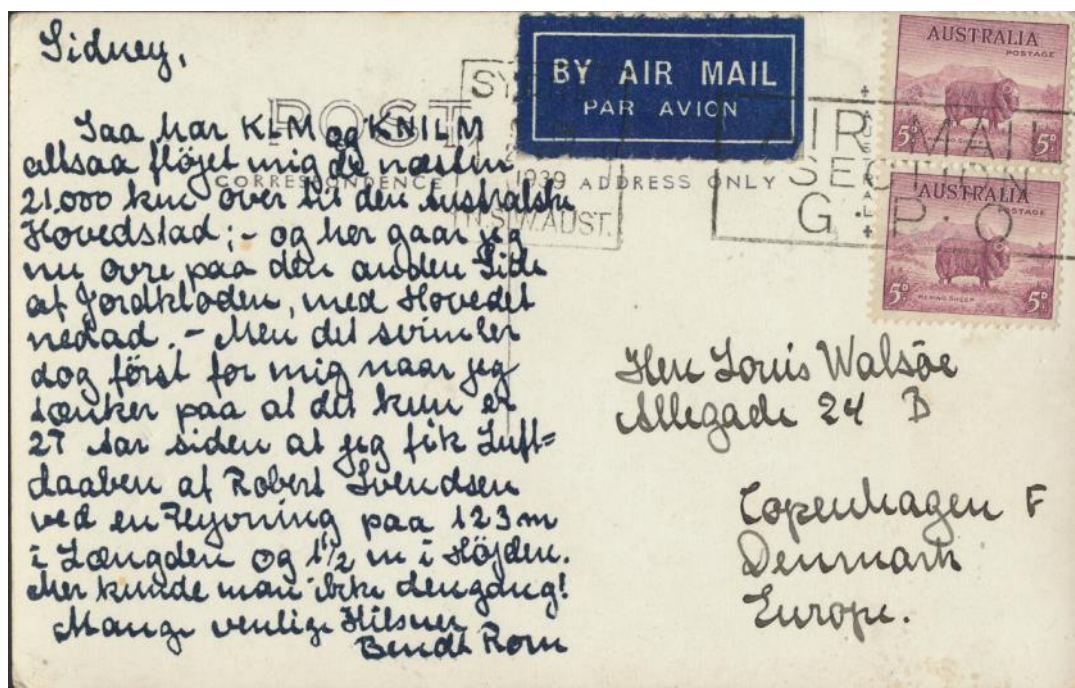 Sidney,
Saa har KLM og KNILM
altsaa fløjet mig de næsten
21.000 km over til den Australske
Hovedstad; - og her gaar jeg
nu ovre paa den anden Side
af Jordkloden, med Hovedet
nedad. - Men det svimler
dog först for mig naar jeg
tænker paa at det kun er
27 Aar siden at jeg fik Luft=
daaben af Robert Svendsen
ved en Flyvning paa 123 m
i Længden og 1 1/2 m i Höjden.
Mer kunde man ikke dengang!
Mange venlige Hilsner
Bendt Rom
POST
CORRESPONDENCE
ADDRESS ONLY
BY AIR MAIL
PAR AVION
1939
N.S.W. AUST.
AIR MAIL
SECTION
G.P.O
AUSTRALIA
POSTAGE
5D 5D
AUSTRALIA
POSTAGE
MERINO SHEEP
5D 5D
Herr Louis Walsöe
Allegade 24 B
Copenhagen F
Denmark
Europe.